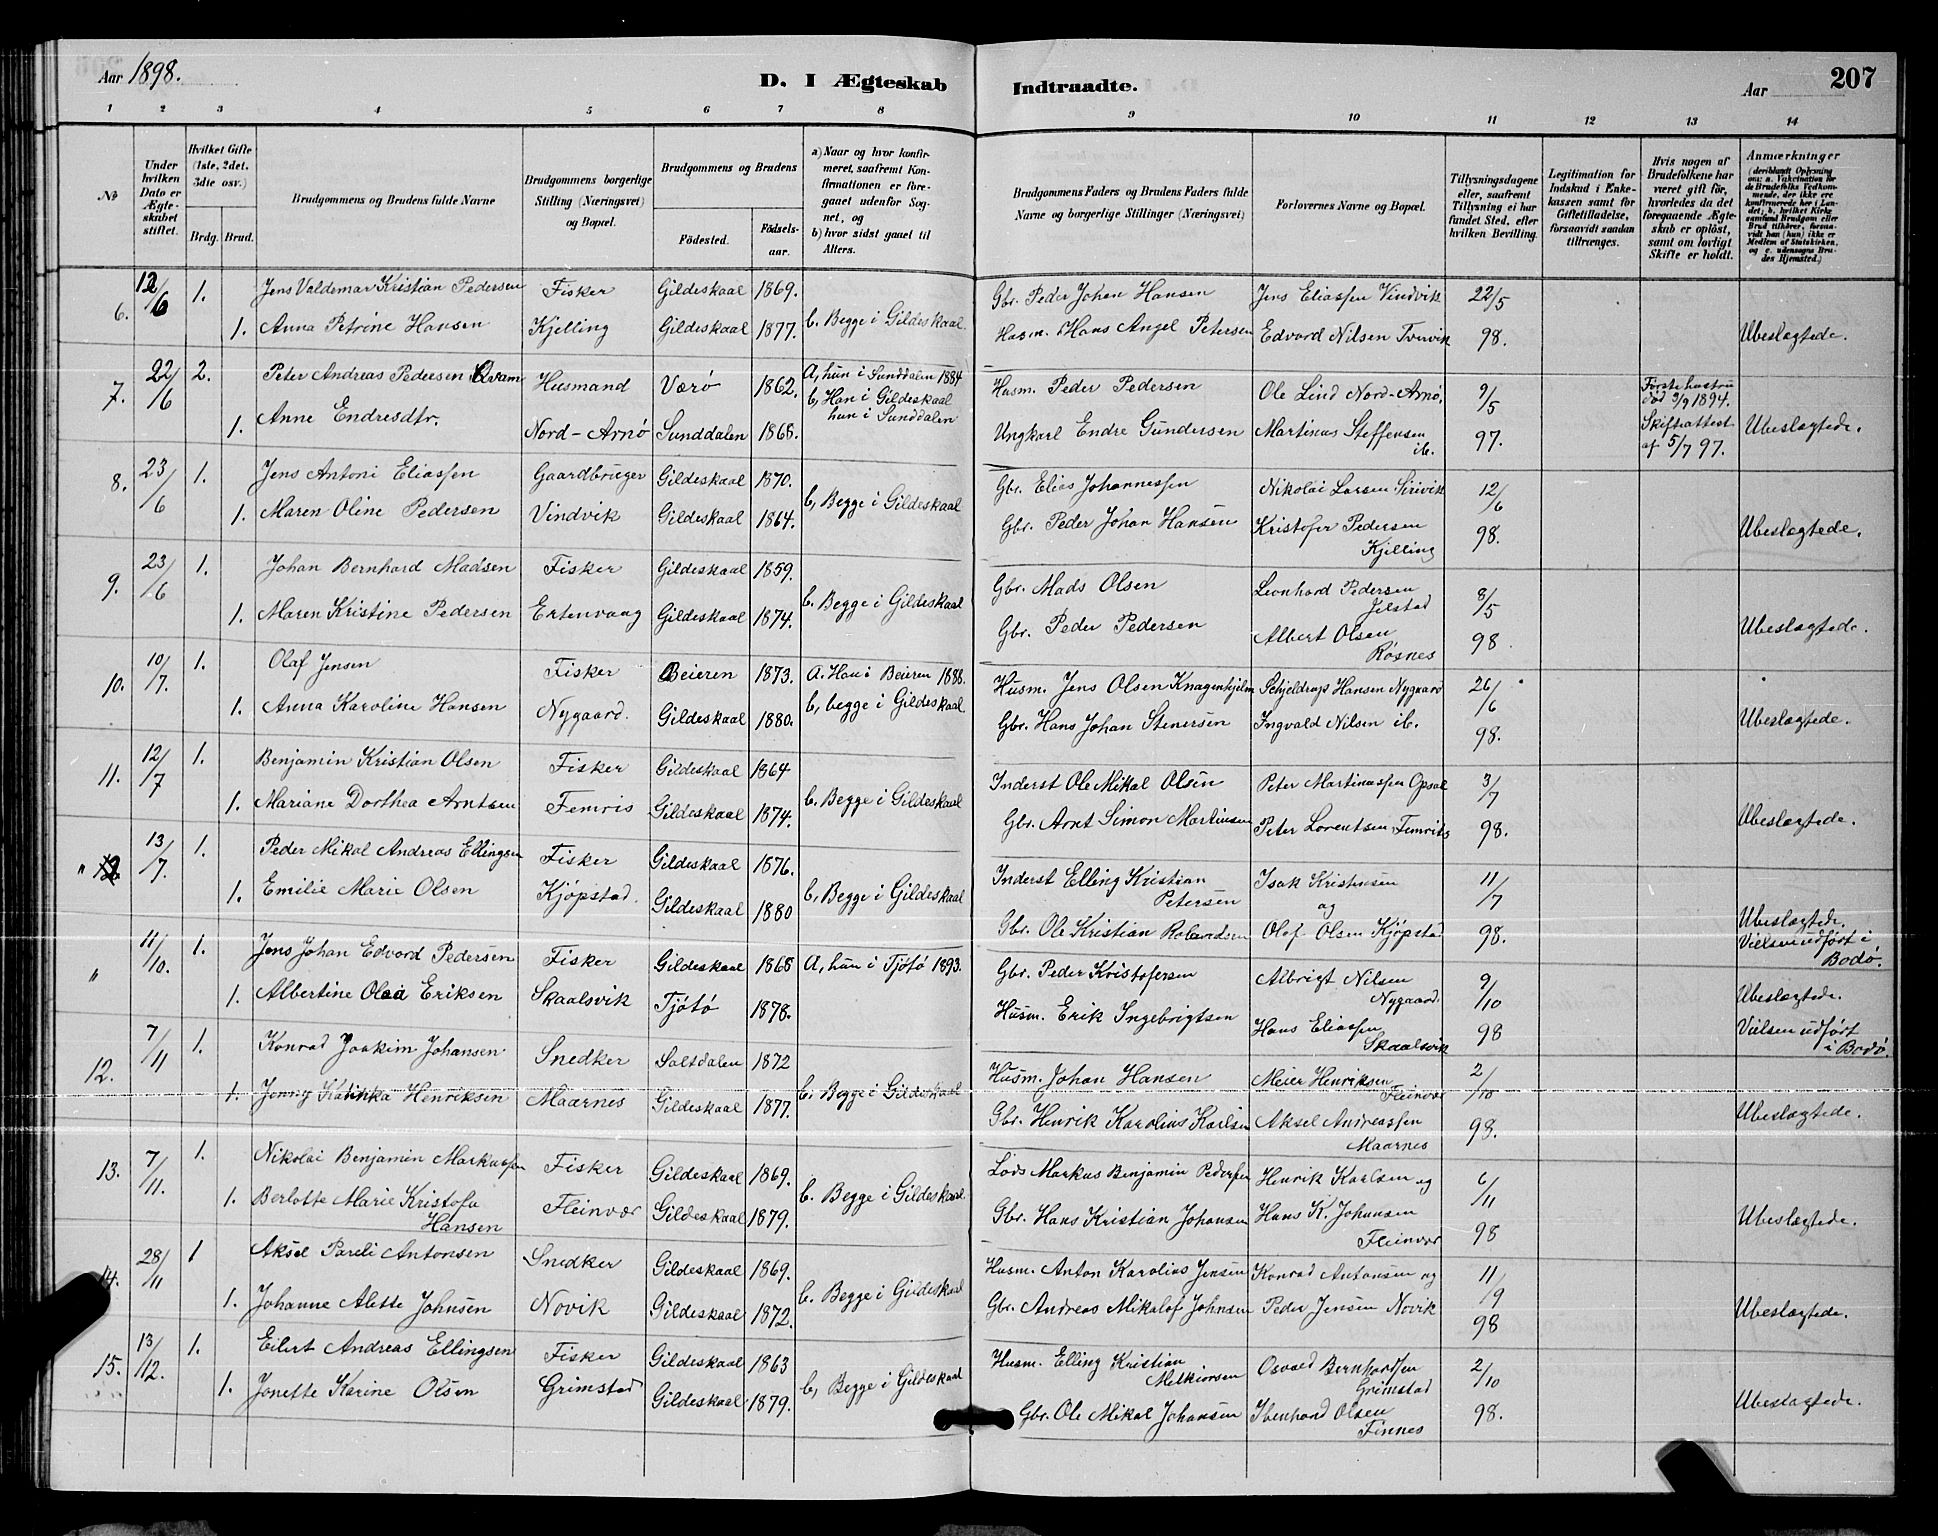 Aar 1898.
D. I Ægteskab
Indtraadte.
Aar
207
1 2 3 4 5 6 7 8 9 10 11 12 13 14
No
Under hvilken Dato er Ægteskabet stiftet.
Hvilket Gifte (1ste, 2det, 3die osv.)
Brdg. Brud.
Brudgommens og Brudens fulde Navne
Brudgommens borgerlige Stilling (Næringsvei) og Bopæl.
Brudgommens og Brudens
Fødested.
Fødselsaar.
a) Naar og hvor konfirmeret, saafremt Konfirmationen er foregaaet udenfor Sognet, og
b) hvor sidst gaaet til Alters.
Brudgommens Faders og Brudens Faders fulde Navne og borgerlige Stillinger (Næringsvei)
Forlovernes Navne og Bopæl.
Tillysningsdagene eller, saafremt Tillysning ei har fundet Sted, efter hvilken Bevilling.
Legitimation for Indskud i Ænkekassen samt for Giftetilladelse, forsaavidt saadan tiltrænges.
Hvis nogen af Brudefolkene har været gift før, hvorledes da det foregaaende Ægteskab er opløst, samt om lovligt Skifte er holdt.
Anmærkninger (deriblandt Oplysning om: a. Vakcination for de Brudefolks Vedkommende, der ikke ere konfirmerede her i Landet; b. hvilket Kirkesamfund Brudgom eller Brud tilhører, forsaavidt han (hun) ikke er Medlem af Statskirken, og c. udensogns Brudes Hjemsted.)
6. 12/6 1. Jens Valdemar Kristian Pedersen Fisker Gildeskaal 1869. Gbr. Peder Johan Hansen Jens Eliassen Vindvik 22/5
1. Anna Petrine Hansen Kjelling Gildeskaal 1877. b. Begge i Gildeskaal. Husm. Hans Angel Petersen Edvard Nilsen Tvervik 98. Ubeslægtede.
7. 22/6 2. Peter Andreas Pedersen Kvam Husmand Værø 1862. A, hun i Sunddalen 1884 b, Han i Gildeskaal hun i Sunddalen Husm. Peder Pedersen Ole Lind Nord-Arnø, 9/5 Første hustru død 3/9 1894.
1. Anne Endresdtr. Nord-Arnø Sunddalen 1868. Ungkarl Endre Gundersen Martinus Steffensen ib. 97. Skifteattest af 5/7 97. Ubeslægtede.
8. 23/6 1. Jens Antoni Eliassen Gaardbruger Gildeskaal 1870. Gbr. Elias Johannessen Nikolai Larsen Sirivik 12/6
1. Maren Oline Pedersen Vindvik Gildeskaal 1864. b, Begge i Gildeskaal Gbr. Peder Johan Hansen Kristofer Pedersen Kjelling 98. Ubeslægtede.
9. 23/6 1. Johan Bernhard Madsen Fisker Gildeskaal 1859. Gbr. Mads Olsen Leonhard Pedersen Jelstad 8/5
1. Maren Kristine Pedersen Ertenvaag Gildeskaal 1874. b. Begge i Gildeskaal Gbr. Peder Pedersen Albert Olsen Røsnes 98. Ubeslægtede.
10. 10/7. 1. Olaf Jensen Fisker Beieren 1873. A. Han i Beieren 1888. Husm. Jens Olsen Knagenhjelm Schjeldrup Hansen Nygaard 26/6
1. Anna Karoline Hansen Nygaard. Gildeskaal 1880. b, begge i Gildeskaal. Gbr. Hans Johan Stenersen Ingvald Nilsen ib. 98. Ubeslægtede.
11. 12/7 1. Benjamin Kristian Olsen Fisker Gildeskaal 1864 Inderst Ole Mikal Olsen Peter Martinussen Opsal 3/7
1. Mariane Dorthea Arntsen Femris Gildeskaal 1874. b. Begge i Gildeskaal Gbr. Arnt Simon Martinsen Peter Lorentsen Femris 98. Ubeslægtede.
" 13/7. 1. Peder Mikal Andreas Ellingsen Fisker Gildeskaal 1876. Inderst Elling Kristian Petersen Isak Kristensen og 11/7
1. Emilie Marie Olsen Kjøpstad. Gildeskaal 1880 b, Begge i Gildeskaal Gbr. Ole Kristian Rolandsen Olaf Olsen Kjøpstad 98. Ubeslægtede. Vielsen udført i Bodø.
" 11/10. 1. Jens Johan Edvard Pedersen Fisker Gildeskaal 1868 A, hun i Tjøtø 1893. Gbr. Peder Kristofersen Albrigt Nilsen Nygaard. 9/10
1. Albertine Olea Eriksen Skaalsvik Tjøtø 1878. Husm. Erik Ingebrigtsen Hans Eliassen Skaalsvik 98 Ubeslægtede. Vielsen udført i Bodø.
12. 7/11 1. Konrad Joakim Johansen Snedker Saltdalen 1872 Husm. Johan Hansen Meier Henriksen Fleinvær 2/10
1. Jenny Katinka Henriksen Maarnes Gildeskaal 1877. b. Begge i Gildeskaal Gbr. Henrik Karolius Karlsen Aksel Andreassen Maarnes 98. Ubeslægtede.
13. 7/11. 1. Nikolai Benjamin Markussen Fisker Gildeskaal 1869. Lods Markus Benjamin Pedersen Henrik Karlsen og 6/11
1. Berlotte Marie Kristofa Hansen Fleinvær Gildeskaal 1879. b. Begge i Gildeskaal Gbr. Hans Kristian Johansen Hans K. Johansen Fleinvær 98 Ubeslægtede.
14. 28/11 1 Aksel Pareli Antonsen Snedker Gildeskaal 1869. Husm. Anton Karolius Jensen Konrad Antonsen og 11/9
1. Johanne Alette Johnsen Novik Gildeskaal 1872. b. Begge i Gildeskaal Gbr. Andreas Mikalof Johnsen Peder Jensen Novik 98 Ubeslægtede.
15. 13/12. 1. Eilert Andreas Ellingsen Fisker Gildeskaal 1863 Husm. Elling Kristian Melkiorsen Osvald Bernhardsen Grimstad 2/10
1. Jonette Karine Olsen Grimstad Gildeskaal 1879. b, Begge i Gildeskaal Gbr. Ole Mikal Johansen Ibenhard Olsen Finnes 98. Ubeslægtede.